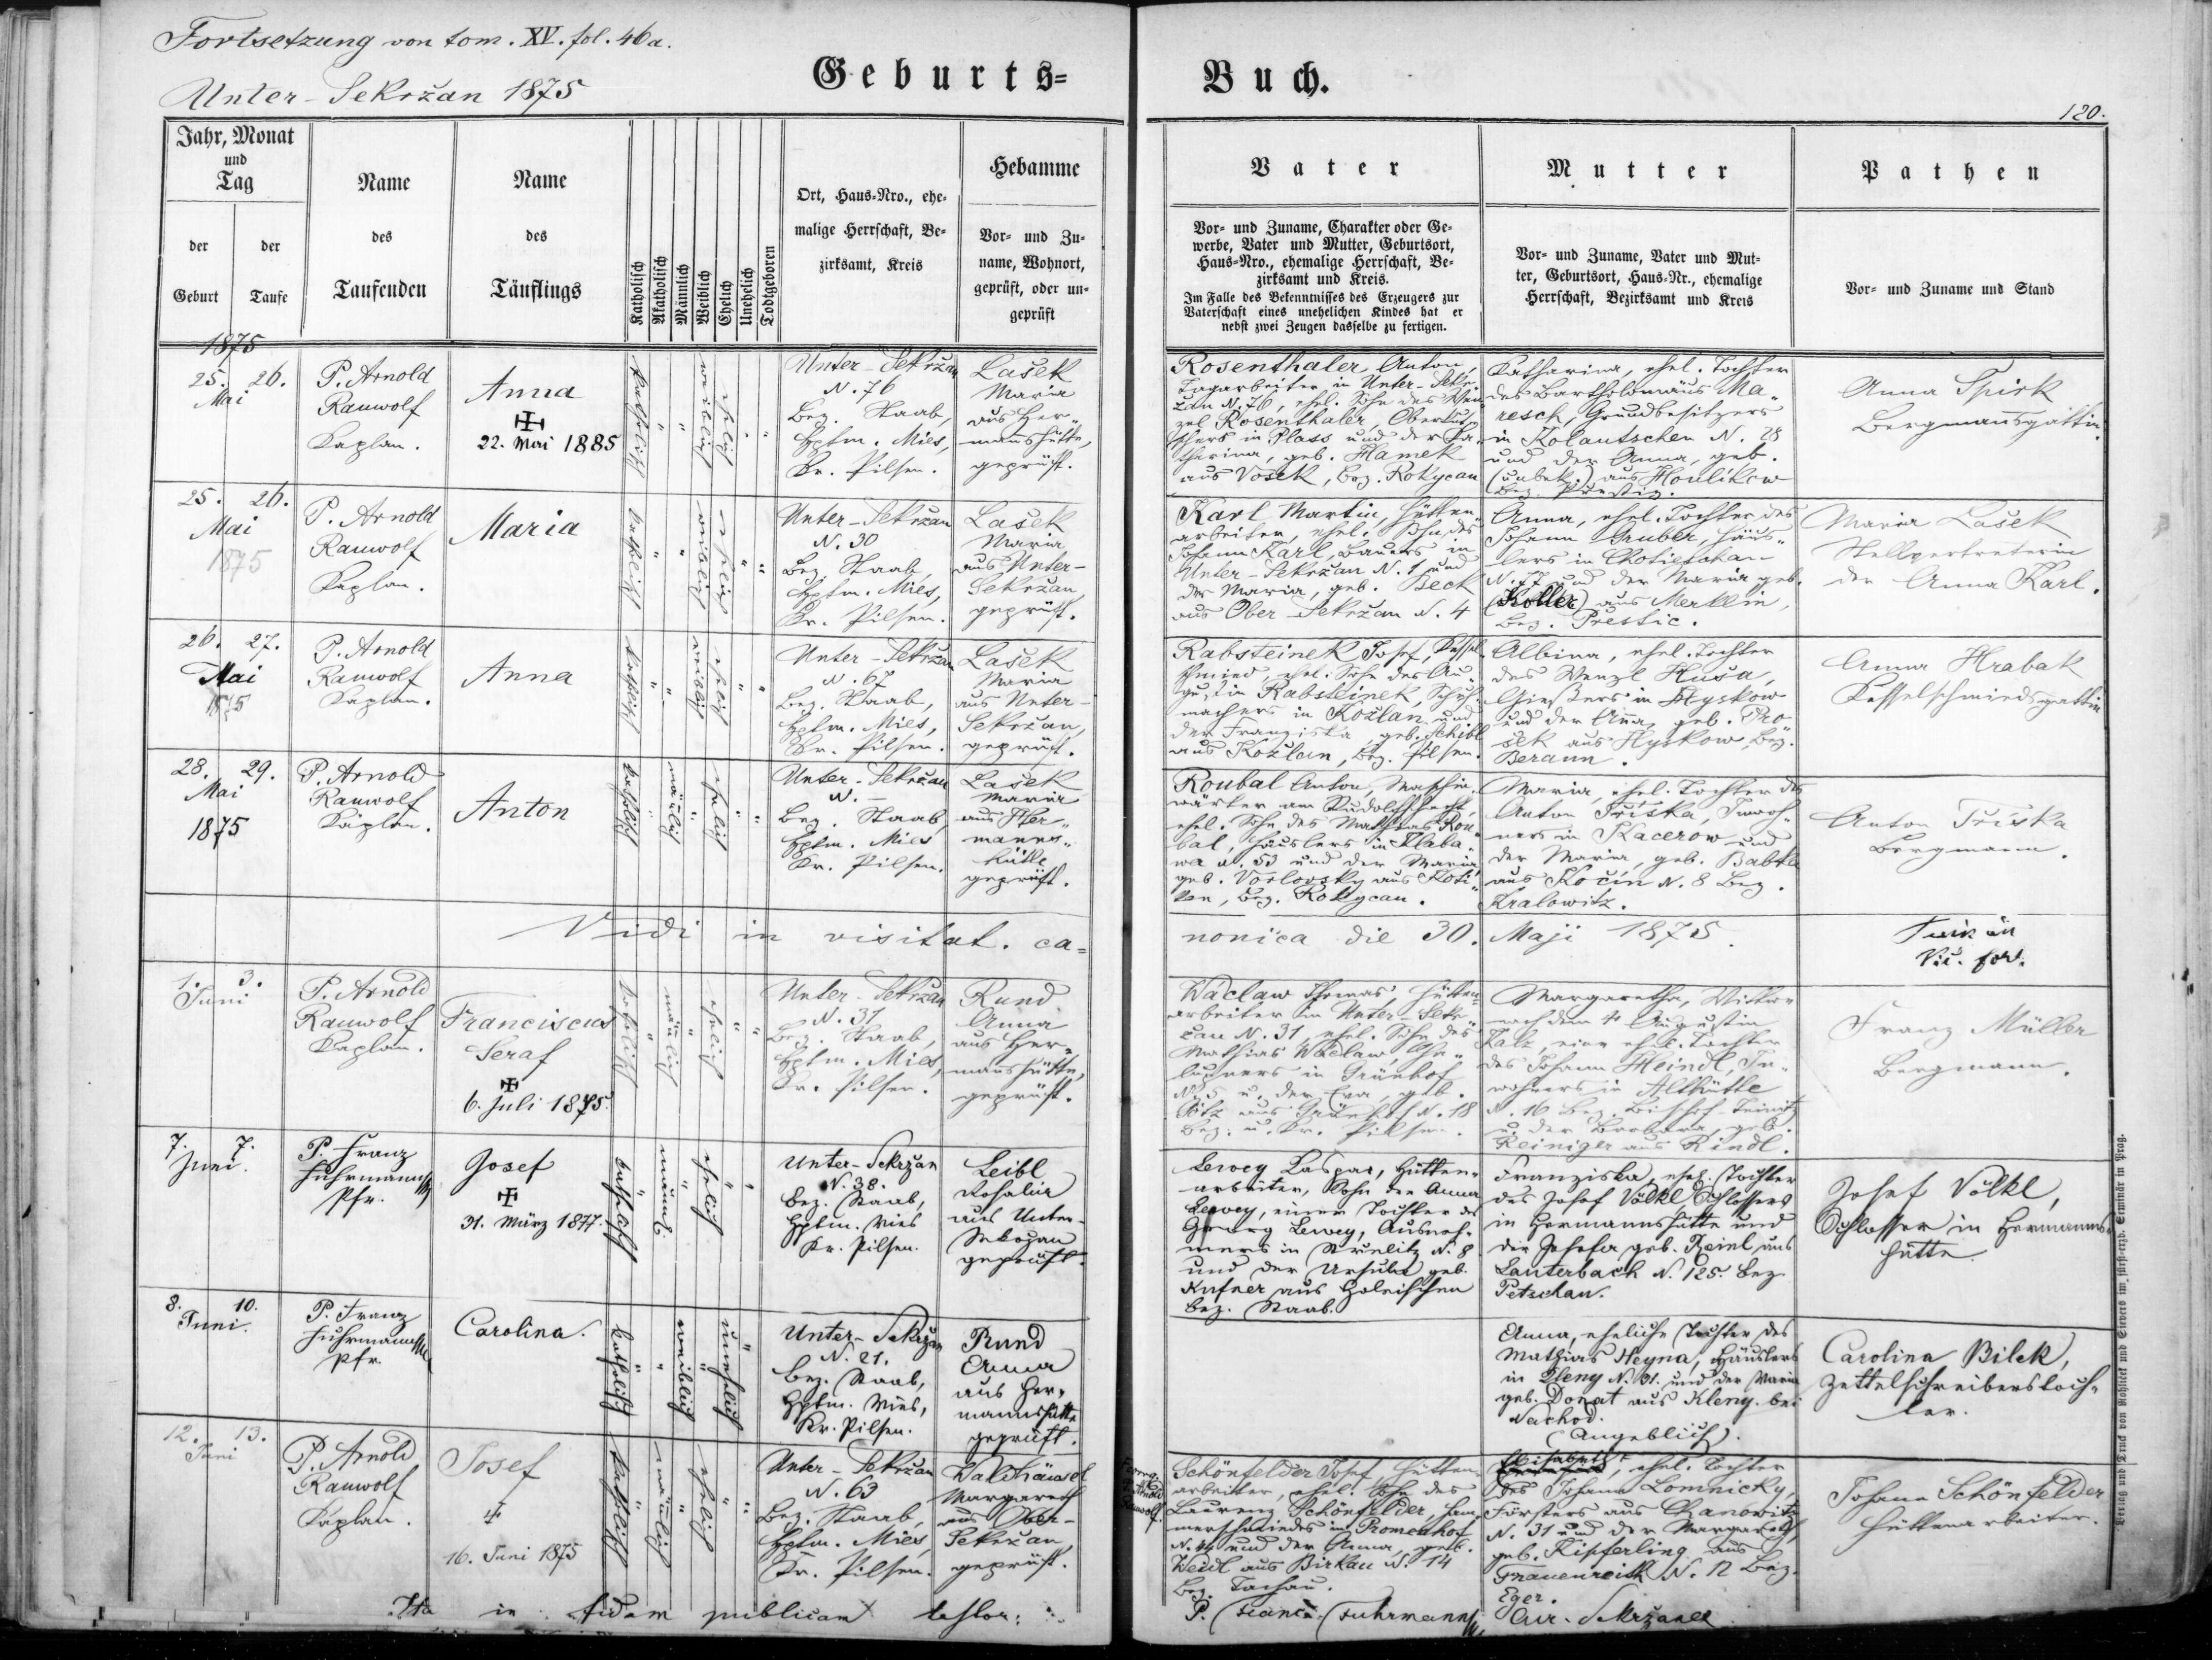 Fortsetzung von tom. XV. fol. 46a.
Unter-Sekržan 1875
Geburts=
Buch.
120.
Jahr, Monat
und
Tag
der
Geburt
der
Taufe
Name
des
Taufenden
Name
des
Täuflings
Katholisch
Akatholisch
Männlich
Weiblich
Ehelich
Unehelich
Todtgeboren
Ort, Haus=Nro., ehe=
malige Herrschaft, Be=
zirksamt, Kreis
Hebamme
Vor= und Zu=
name, Wohnort,
geprüft, oder un=
geprüft
Vater
Vor= und Zuname, Charakter oder Ge=
werbe, Vater und Mutter, Geburtsort,
Haus=Nro., ehemalige Herrschaft, Be=
zirksamt und Kreis.
Im Falle des Bekenntnisses des Erzeugers zur
Vaterschaft eines unehelichen Kindes hat er
nebst zwei Zeugen dasselbe zu fertigen.
Mutter
Vor= und Zuname, Vater und Mut=
ter, Geburtsort, Haus=Nr., ehemalige
Herrschaft, Bezirksamt und Kreis
Pathen
Vor= und Zuname und Stand
1875
25. 26.
Mai
P. Arnold
Rauwolf
Kaplan.
Anna
22. Mai 1885
katholisch
weiblich
ehelich
Unter-Sekržan
N. 76
Bez. Staab,
Hptm. Mies,
Kr. Pilsen.
Lašek
Maria
aus Her„
mannshütte,
geprüft.
Rosenthaler Anton,
Tagarbeiter in Unter-Sekr„
žan N. 76, ehel. Sohn des Wen„
zel Rosenthaler,
in Plass und der Ka„
tharina, geb. Hamek
aus Vosek, Bez. Rokycan
Katharina, ehel. Tochter
des Bartholomäus Ma„
resch, Grundbesitzers
in Kolautschen N. 28
und der Anna, geb.
(unbek.) aus Houlikow
Bez. Prestiz.
Anna Spirk
Bergmannsgattin.
25. 26.
Mai
1875
P. Arnold
Rauwolf
Kaplan.
Maria
katholisch
weiblich
ehelich
Unter-Sekržan
N. 30
Bez. Staab,
Hptm. Mies,
Kr. Pilsen.
Lašek
Maria
aus Unter-
Sekržan,
geprüft.
Karl Martin, Hütten„
arbeiter, ehel. Sohn des
Johann Karl, Bauers in
Unter-Sekržan N. 1 und
der Maria, geb. Beck
aus Ober Sekržan N. 4
Anna, ehel. Tochter des
Johann Gruber, Häus„
lers in Chotieschau
N. 77 und der Maria geb.
(Koller) aus Merklin,
Bez. Prestic.
Maria Lašek
Stellvertreterin
der Anna Karl.
26. 27.
Mai
1875
P. Arnold
Rauwolf
Kaplan.
Anna
katholisch
weiblich
ehelich
Unter-Sekržan
N. 67
Bez. Staab,
Hptm. Mies,
Kr. Pilsen.
Lašek
Maria
aus Unter-
Sekržan,
geprüft.
Rabsteinek Josef, Kessel„
schmied, ehel. Sohn des Au„
gustin Rabsteinek, Schuh„
machers in Kožlan und
der Franziska, geb. Schibl
aus Kožlan, Bez. Pilsen.
Albina, ehel. Tochter
des Wenzl Husa,
Gießers in Hyskow
und der Anna, geb. Pro„
šek aus Hyskow, Bez.
Beraun.
Anna Hrabak
Kesselschmiedsgattin
28. 29.
Mai
1875
P. Arnold
Rauwolf
Kaplan.
Anton
katholisch
männlich
ehelich
Unter-Sekržan
N. —
Bez. Staab,
Hptm. Mies
Kr. Pilsen.
Lašek
Maria
aus Her„
manns„
hütte
geprüft.
Roubal Anton, Maschin„
wärter am Rudolfschacht,
ehel. Sohn des Mathias Rou„
bal, Häuslers in Klaba„
wa N. 53 und der Maria,
geb. Vorlovsky aus Koti„
ken, Bez. Rokycan.
Maria, ehel. Tochter des
Anton Tříska, Inwoh„
ners in Kacerow und
der Maria, geb. Babka
aus Kočín N. 8 Bez.
Kralowitz.
Anton Tříska
Bergmann.
Vidi in visitat. ca=
nonica die 30. Maji 1875.
Vic. for.
1. 3.
Juni
P. Arnold
Rauwolf
Kaplan.
Franciscus
Seraf
6. Juli 1875.
katholisch
männlich
ehelich
Unter-Sekržan
N. 31
Bez. Staab,
Hptm. Mies,
Kr. Pilsen.
Rund
Anna
aus Her„
mannshütte,
geprüft.
Waclaw Thomas, Hütten„
arbeiter in Unter-Sekr„
žan N. 31, ehel. Sohn des
Mathias Waclaw, Cha„
lupners in Grünhof
N. 5 u. der Eva, geb.
aus Grünhof N. 18
Bez. u. Kr. Pilsen.
Margaretha, Wittwe
nach dem † Augustin
Talz, eine ehel. Tochter
des Johann Heindl, In„
wohners in Althütte
N. 16 Bez. Bischof-Teinitz
u. der Barbara, geb.
Reiniger aus Rindl.
Franz Müller
Bergmann.
7. 7.
Juni.
P. Franz
Fuhrmann
Pfr.
Josef
31. März 1877.
katholisch
männl.
ehelich
Unter-Sekržan
N. 38.
Bez. Staab,
Hptm. Mies
Kr. Pilsen.
Leibl
Rosalia
aus Unter-
Sekržan
geprüft.
Lewey Kaspar, Hütten„
arbeiter, Sohn der Anna
Lewey, einer Tochter des
Georg Lewey, Ausneh„
mers in Strelitz N. 8
und der Ursula geb.
Kufner aus Holeischen
Bez. Staab.
Franziska, ehel. Tochter
des Josef Völkl Schlossers
in Hermannshütte und
der Josefa geb. Heinl aus
Lauterbach N. 125. Bez.
Petschau.
Josef Völkl,
Schlosser in Hermanns„
hütte.
8. 10.
Juni.
P. Franz
Fuhrmann
Pfr.
Carolina.
katholisch
weiblich
unehelich
Unter-Sekržan
N. 21.
Bez. Staab,
Hptm. Mies,
Kr. Pilsen.
Rund
Anna
aus Her„
mannshütte
geprüft.
Anna, eheliche Tochter des
Mathias Heyna, Häuslers
in Kleny N. 31. und der Maria
geb. Donat aus Kleny. bei
Nachod.
(Angeblich).
Carolina Bilek,
Zettelschreiberstoch„
ter.
12. 13.
Juni
P. Arnold
Rauwolf
Kaplan.
Josef
16. Juni 1875
katholisch
männlich
ehelich
Unter-Sekržan
N. 63
Bez. Staab,
Hptm. Mies,
Kr. Pilsen.
Waldhäusel
Margareth
aus Ober-
Sekržan,
geprüft.
P. Arnold
Rauwolf.
Schönfelder Josef, Hütten„
arbeiter, ehel. Sohn des
Laurenz Schönfelder, Ham„
merschmiedes in Promenhof
N. 44 und der Anna, geb.
Weidl aus Birkau N. 14
Bez. Tachau.
Elisabeth, ehel. Tochter
des Johann Lomnicky,
Försters aus Chanowitz
N. 31 und der Margareth,
geb. Kipferling aus
Frauenreith N. 12 Bez.
Eger.
Johann Schönfelder
Hüttenarbeiter.
Ita in fidem publicam testor:
P. Franc. Fuhrmann
Cur. Sekržanee
Verlag und Druck von Rohliček und Sievers im fürst-erzb. Seminär in Prag.